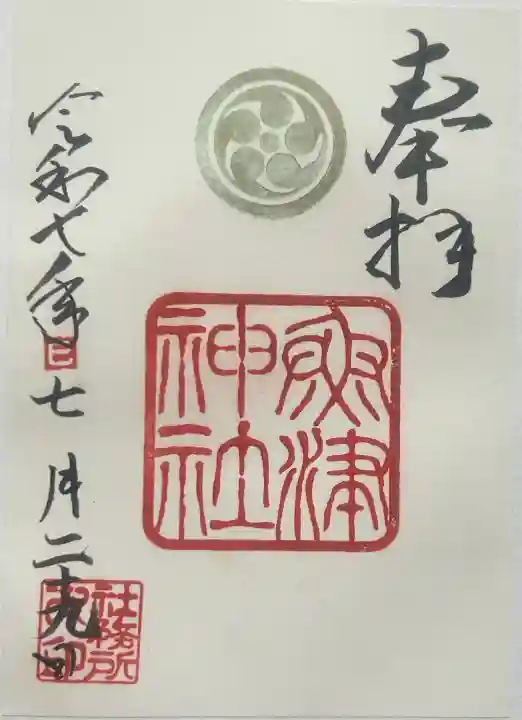 奉拝
魚津
神社
令和七年七月二十九日
社務所
印